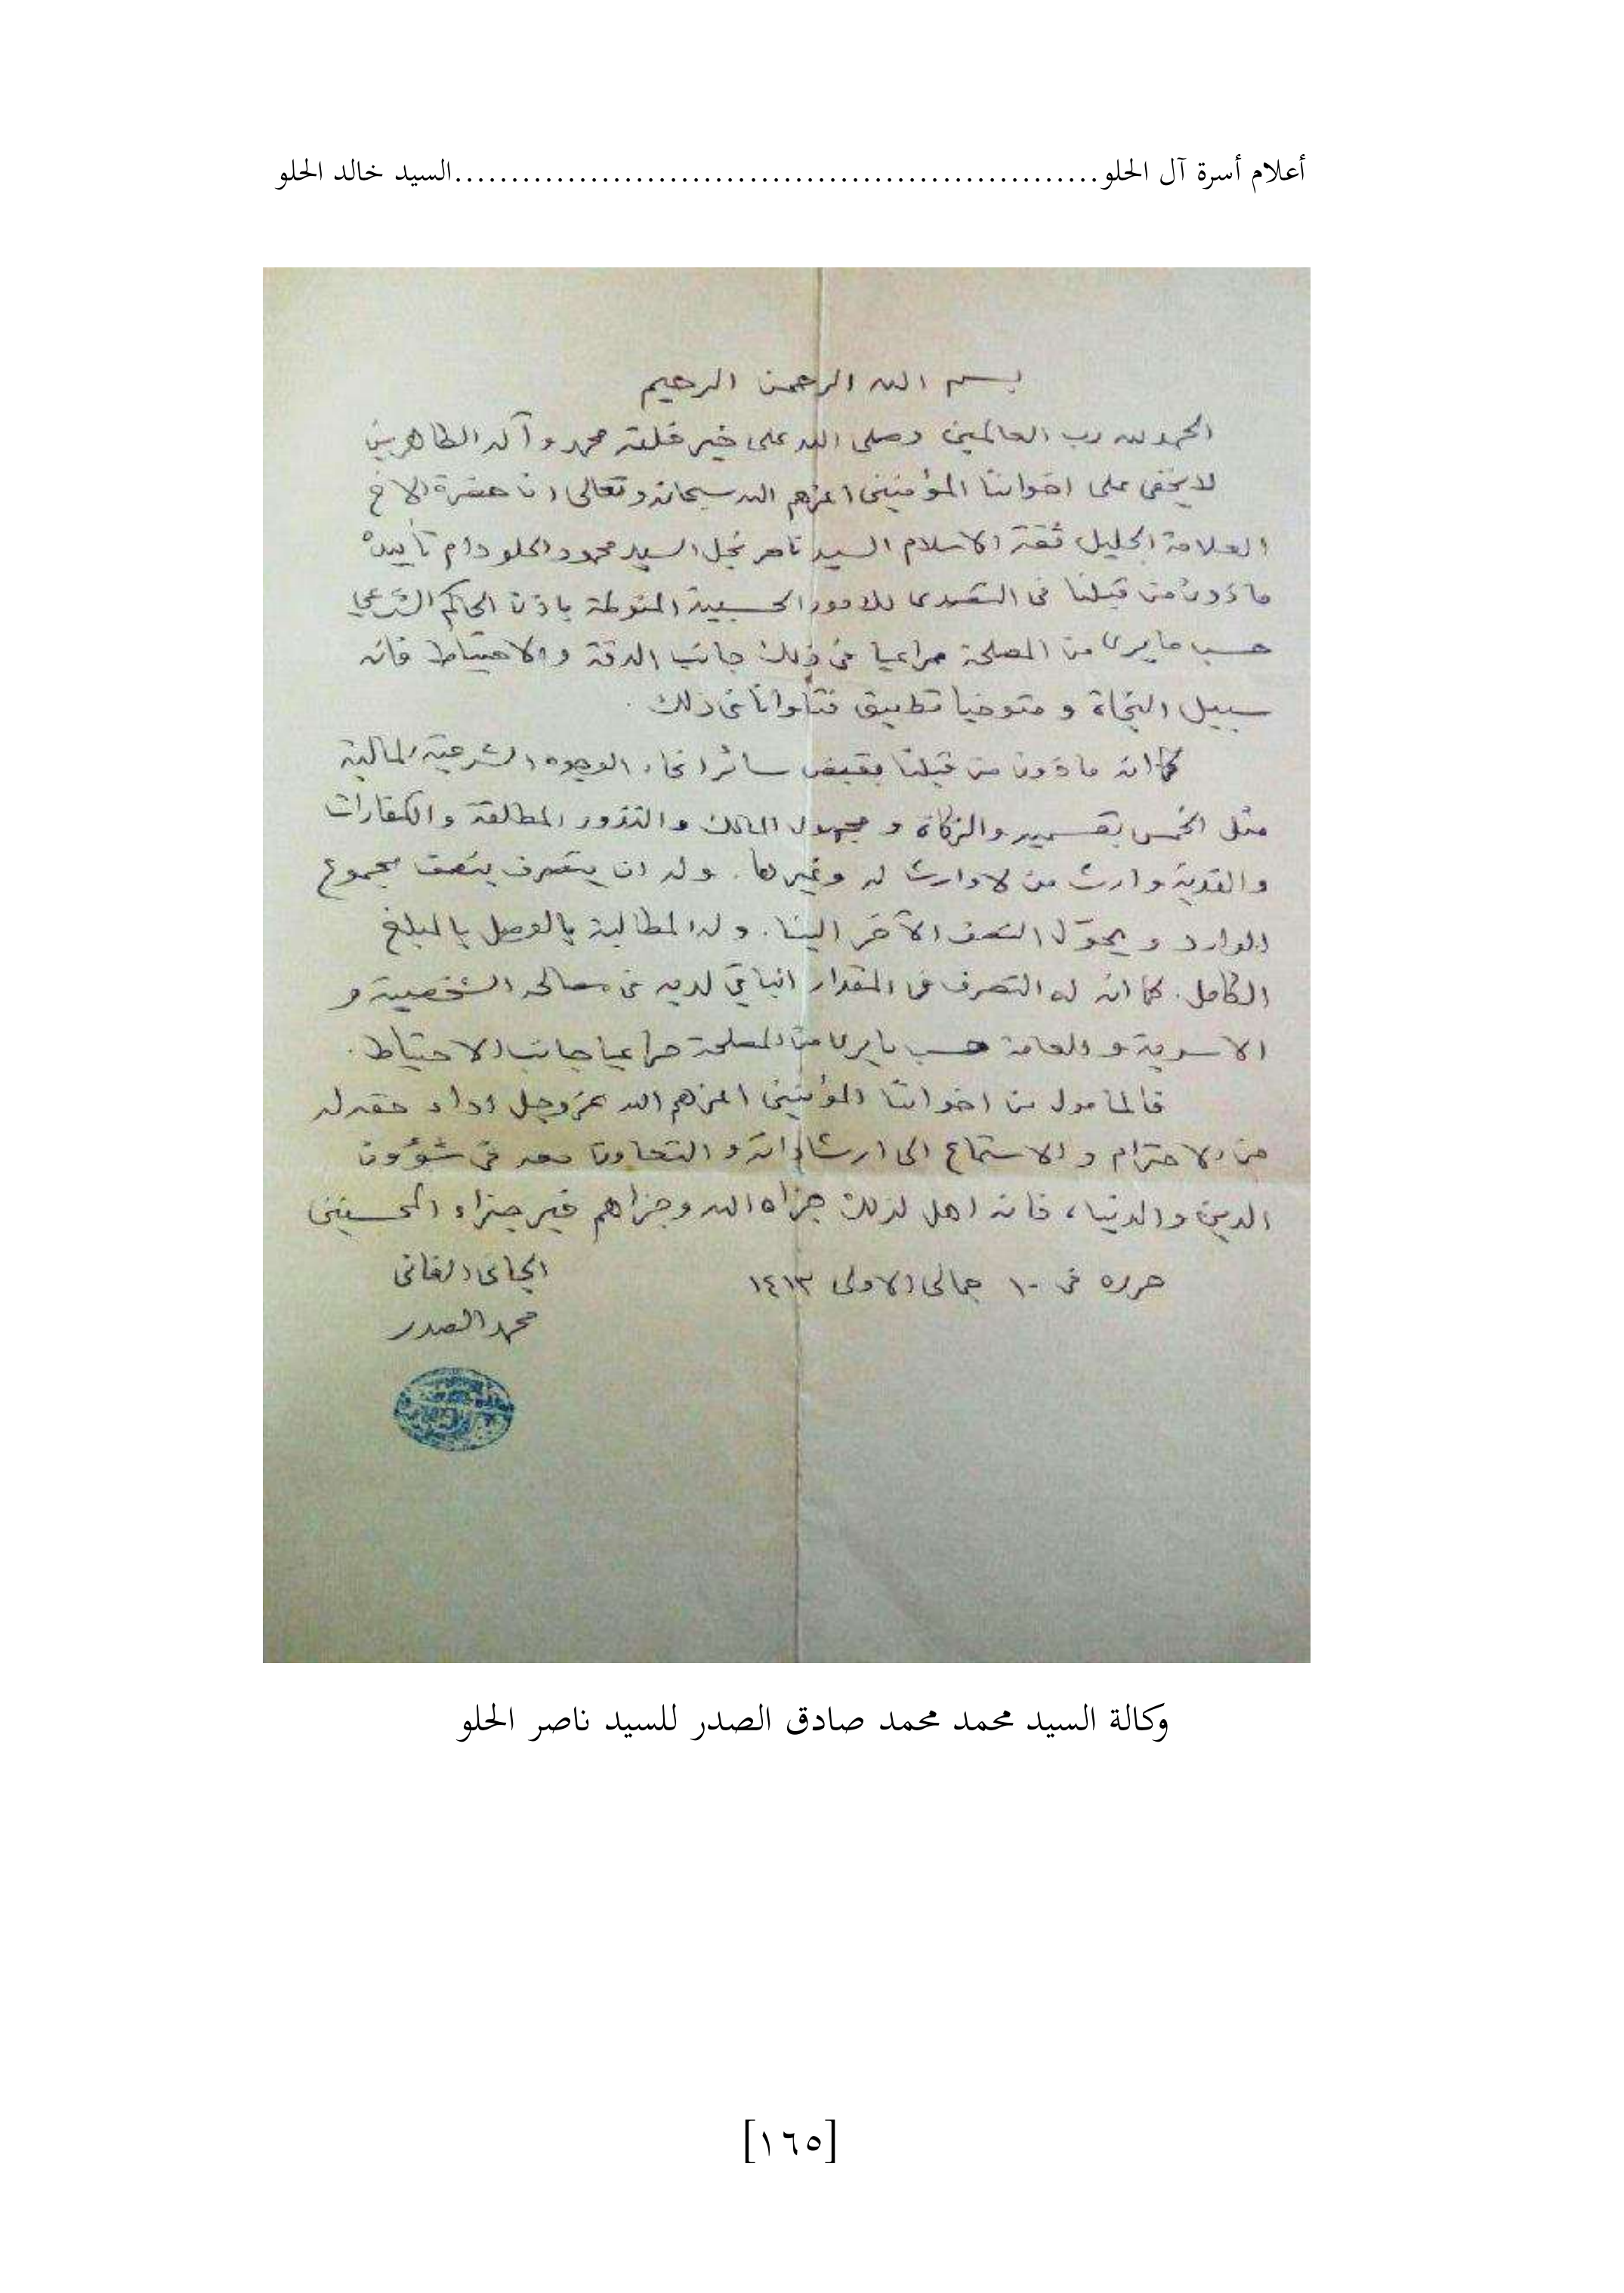 أعلام أسرة آل الحلو.........................................................السيد خالد الحلو
بسم الله الرحمن الرحيم
الحمد لله رب العالمين وصلى الله على خير خلقه محمد وآله الطاهرين
لا يخفى على اخواننا المؤمنين اعزهم الله سبحانه وتعالى ان حضرة الاخ
العلامة الجليل ثقة الاسلام السيد ناصر نجل السيد محمود الحلو دام تأييده
مأذون من قبلنا في التصدي للامور الحسبية المنوطة باذن الحاكم الشرعي
حسب ما يرى من المصلحة مراعيا في ذلك جانب الدقة والاحتياط فانه
سبيل النجاة و متوخيا تطبيق فتاوانا في ذلك .
كما انه مأذون من قبلنا بقبض سائر انحاء الوجوه الشرعية المالية
مثل الخمس بقسميه والزكاة و مجهول المالك والنذور المطلقة والكفارات
والفدية وارث من لا وارث له وغيرها . وله ان يتصرف بنصف مجموع
الوارد و يحوّل النصف الآخر الينا . وله المطالبة بالوصل بالمبلغ
الكامل . كما ان له التصرف في المقدار الباقي لديه في مصالحه الشخصية و
الاسرية والعامة حسب ما يرى من المصلحة مراعيا جانب الاحتياط .
فالمأمول من اخواننا المؤمنين اعزهم الله عز وجل اداء حقه له
من الاحترام و الاستماع الى ارشاداته و التعاون معه في شؤون
الدين والدنيا ، فانه اهل لذلك جزاه الله وجزاهم خير جزاء المحسنين
حرره في ١٠ جمالى الاولى ١٤١٣
الجاني الفاني
محمد الصدر
وكالة السيد محمد محمد صادق الصدر للسيد ناصر الحلو
[١٦٥]